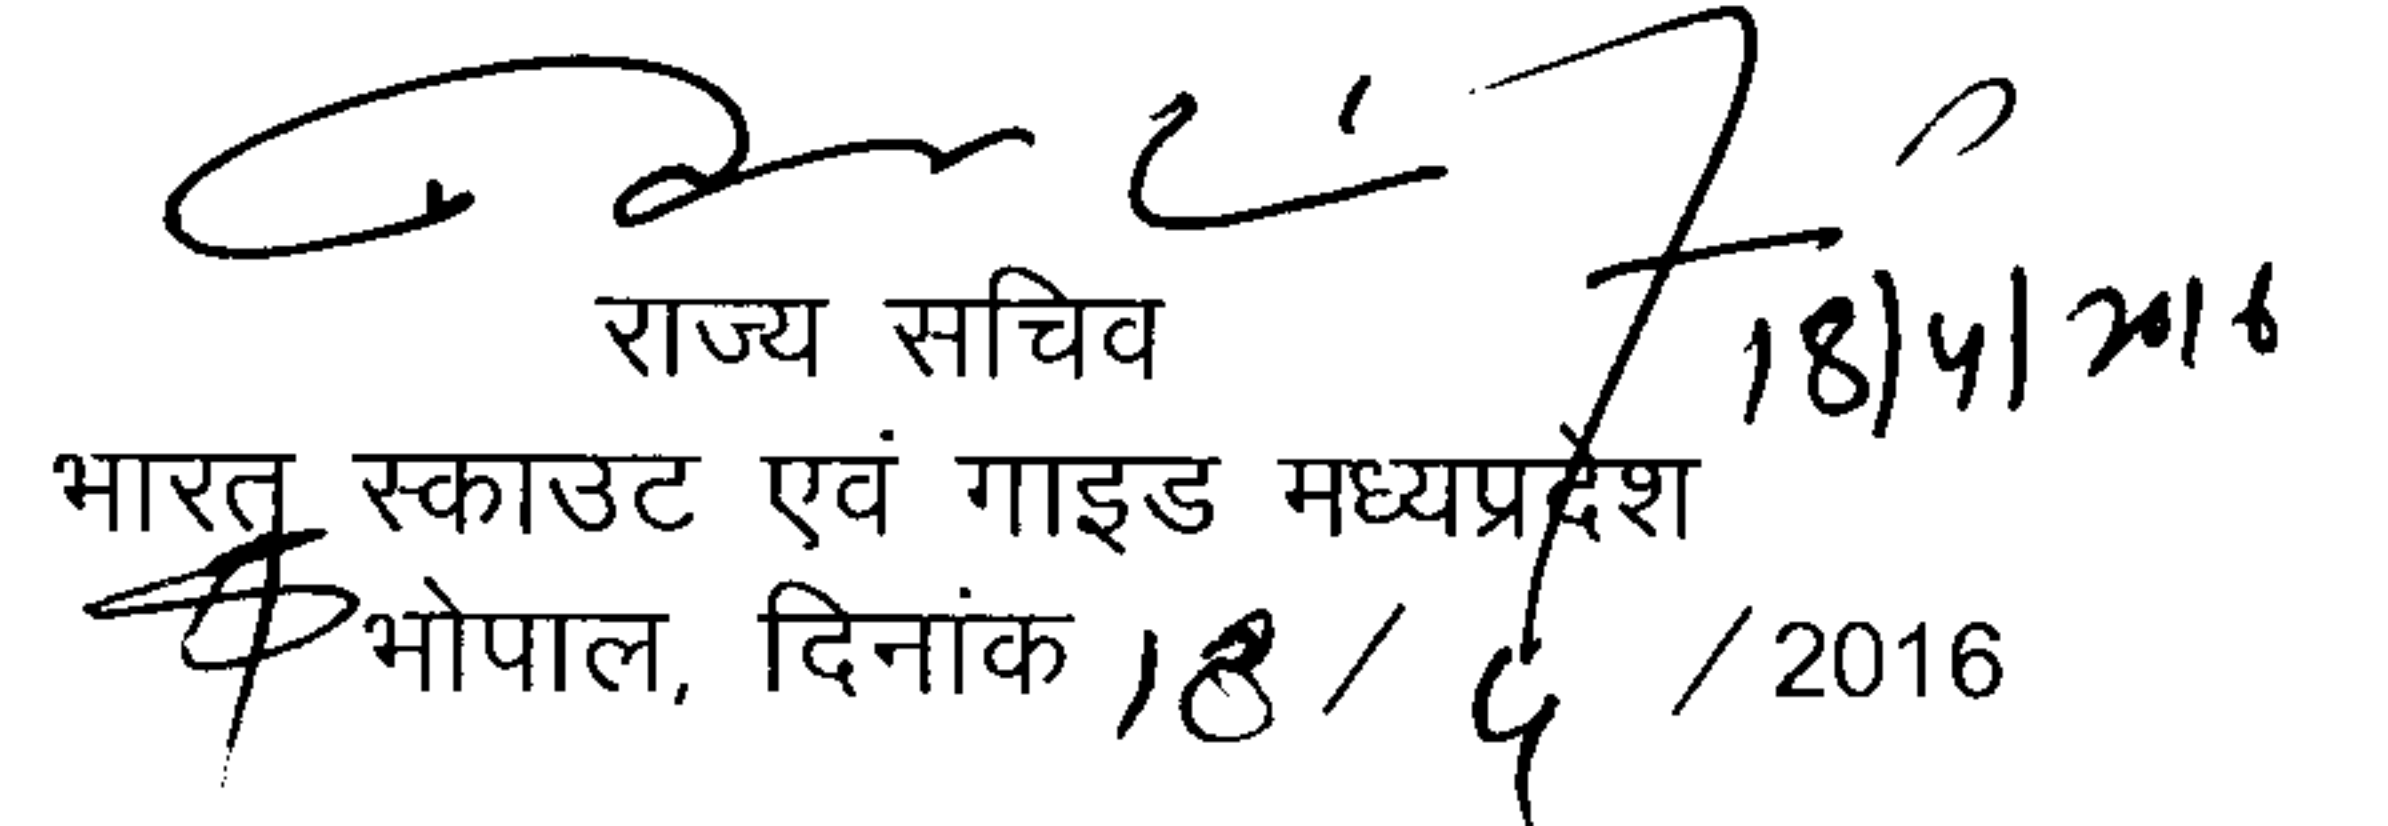 राज्य सचिव
18/4/2016
भारत स्काउट एवं गाइड मध्यप्रदेश
भोपाल, दिनांक 18 / 4 / 2016